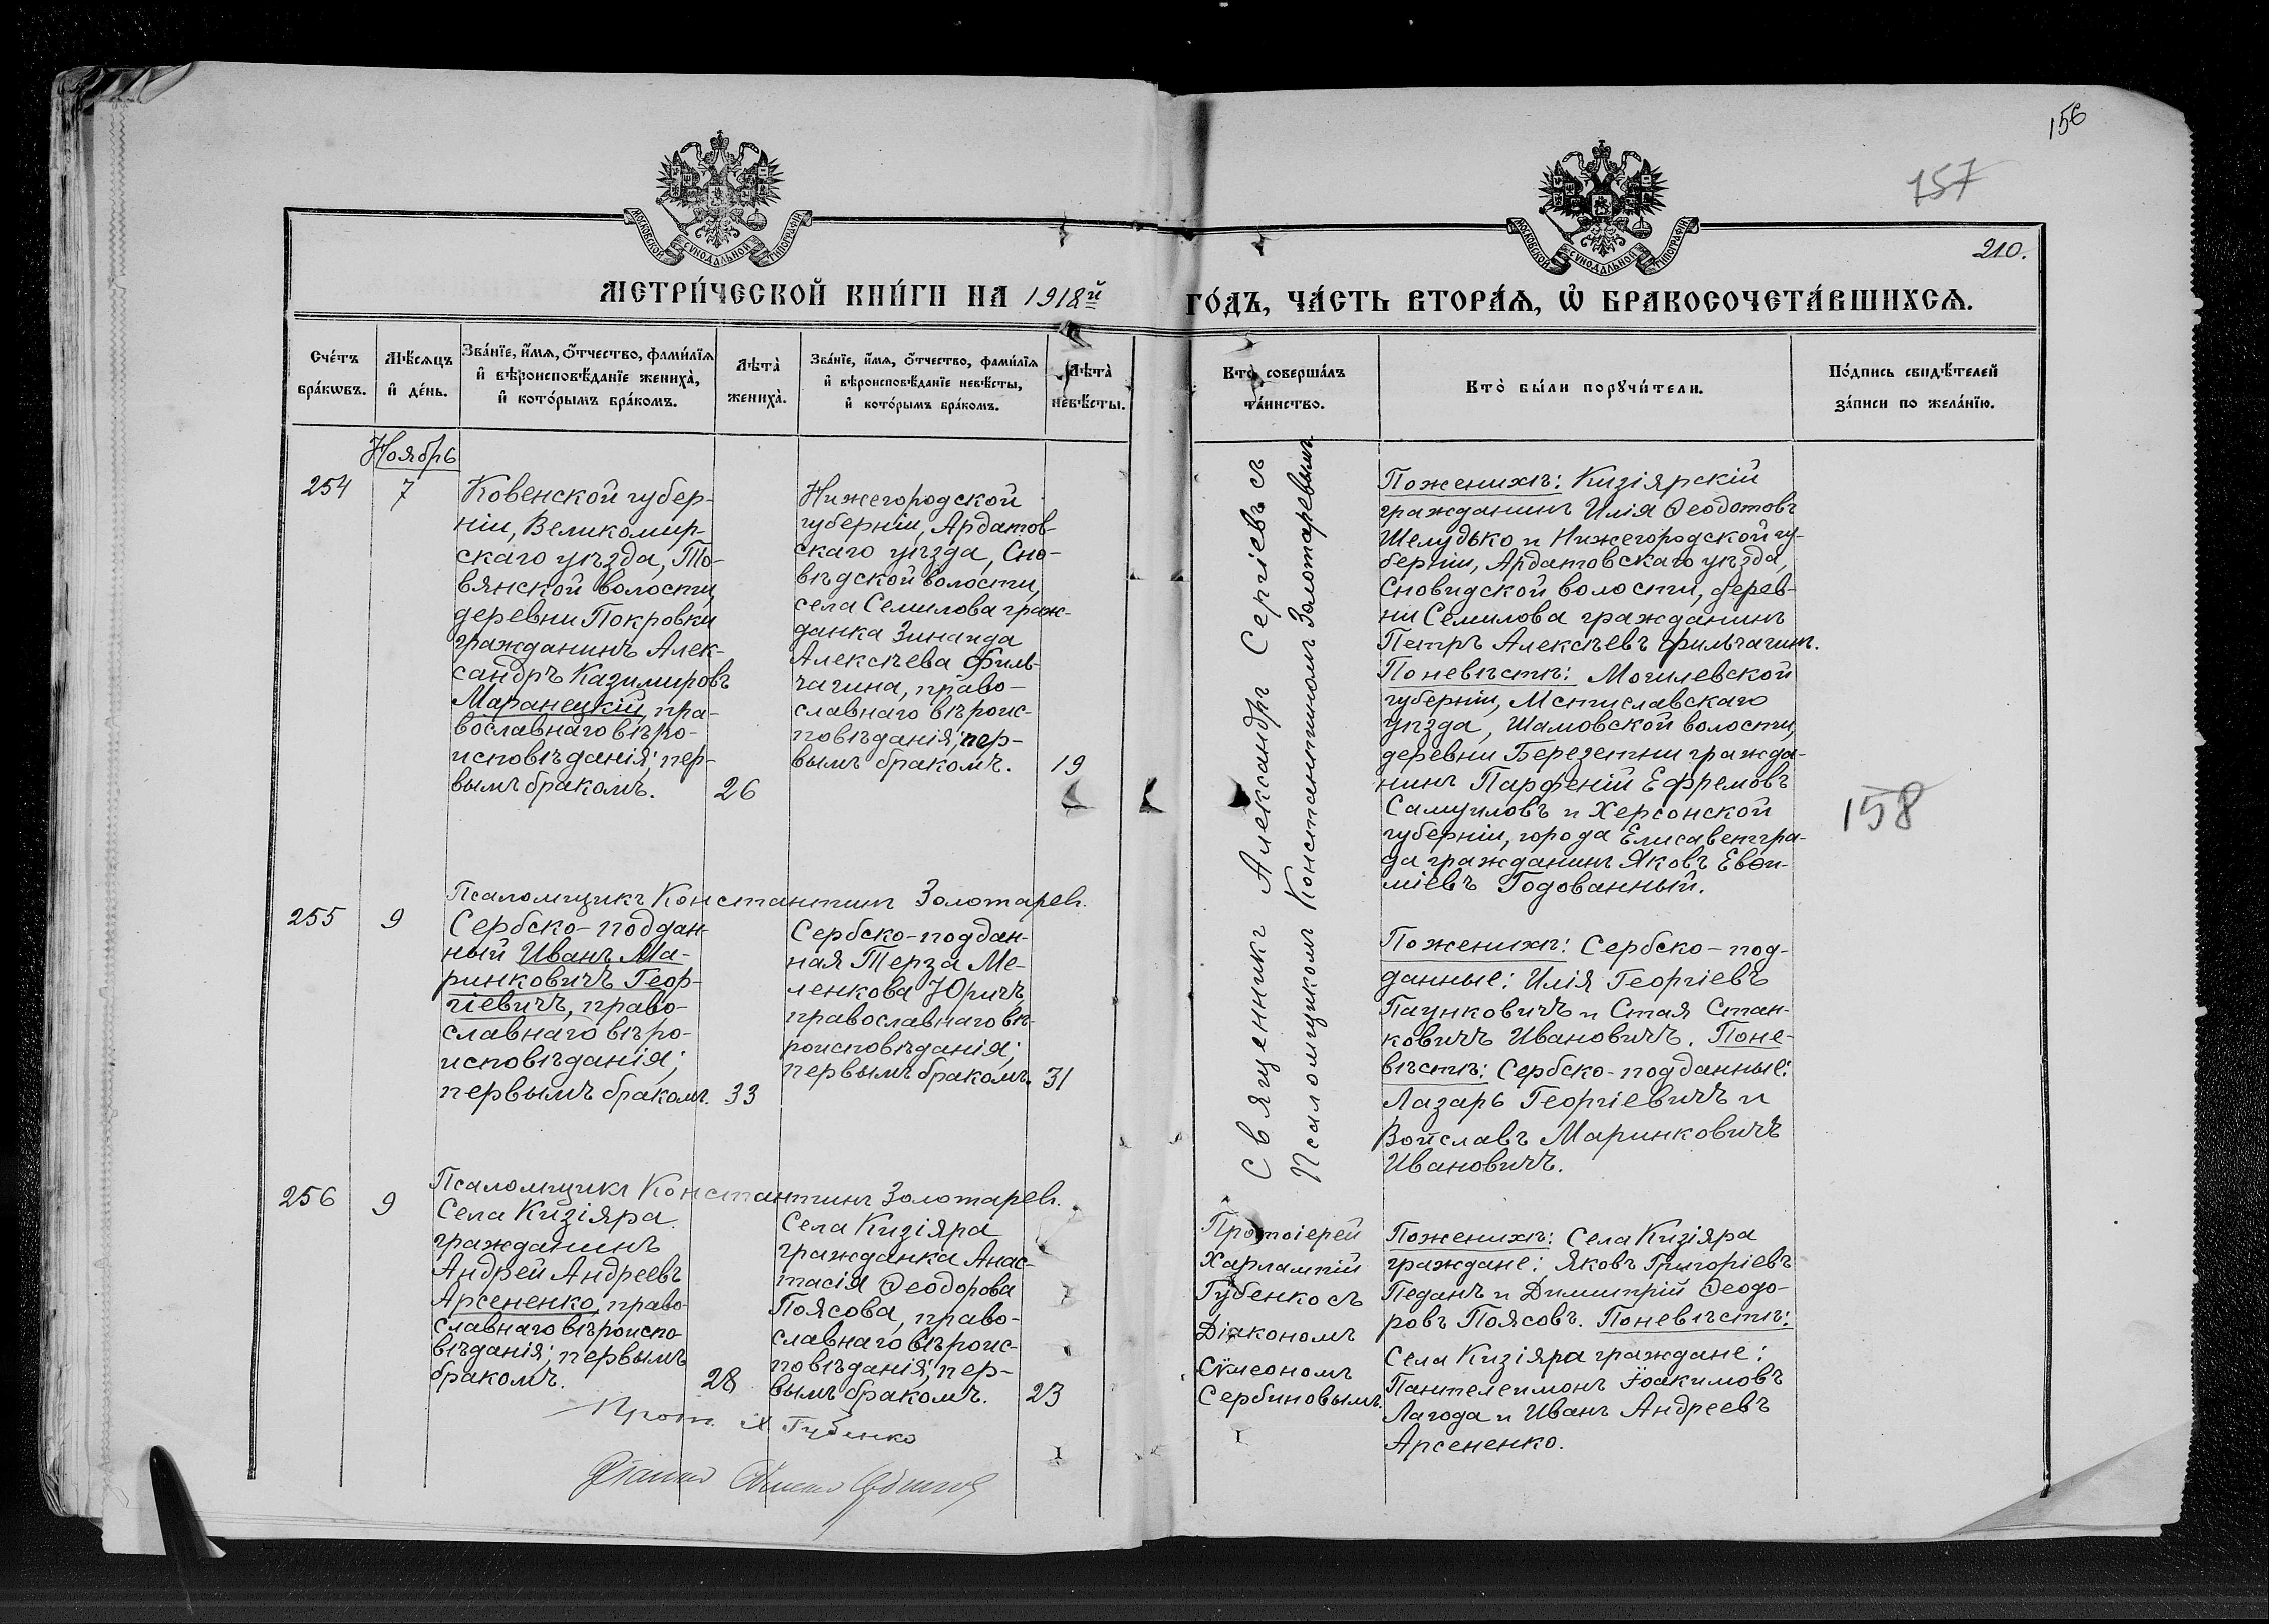 156
157
210.
МОСКОВСКОЙ СѴНОДАЛЬНОЙ ТИПОГРАФІИ
МОСКОВСКОЙ СѴНОДАЛЬНОЙ ТИПОГРАФІИ
МЕТРИ́ЧЕСКОЙ КНИ́ГИ НА 1918й
ГО́ДЪ, ЧА́СТЬ ВТОРА́Ѧ, Ѡ҆ БРАКОСОЧЕТА́ВШИХСѦ.
Сче́тъ
бра́кѡвъ.
Мѣ́сѧцъ
и҆ де́нь.
Зва́нїе, и҆́мѧ, о҆́тчество, фами́лїѧ
и҆ вѣроисповѣ́данїе жениха̀,
и҆ кото́рымъ бра́комъ.
Лѣта̀
жениха̀.
Зва́нїе, и҆́мѧ, о҆́тчество, фами́лїѧ
и҆ вѣроисповѣ́данїе невѣ́сты,
и҆ кото́рымъ бра́комъ.
Лѣта̀
невѣ́сты.
Кто̀ соверша́лъ
та́инство.
Кто̀ бы́ли порꙋчи́тели.
По́дпись свидѣ́телей
за́писи по жела́нїю.
Ноябрь
254
7
Ковенской губер-
ніи, Великомир-
скаго уѣзда, То-
вянской волости,
деревни Покровки
гражданинъ Алек-
сандръ Казимировъ
Маранецкій, пра-
вославнаго вѣро-
исповѣданія; пер-
вымъ бракомъ.
26
Нижегородской
губерніи, Ардатов-
скаго уѣзда, Сно-
вѣдской волости,
села Семилова граж-
данка Зинаида
Алексѣева Филь-
чагина, право-
славнаго вѣроис-
повѣданія; пер-
вымъ бракомъ.
19
Священникъ Александръ Сергіевъ съ
Псаломщикомъ Константиномъ Золотаревымъ
По женихѣ: Кизіярскій
гражданинъ Илія Ѳеодотовъ
Шелудько и Нижегородской гу-
берніи, Ардатовскаго уѣзда,
Сновидской волости, дерев-
ни Семилова гражданинъ
Петръ Алексѣевъ Фильчагинъ.
По невѣстѣ: Могилевской
губерніи, Мстиславскаго
уѣзда, Шамовской волости,
деревни Березетни гражда-
нинъ Парфеній Ефремовъ
Самуиловъ и Херсонской
губерніи, города Елисаветгра-
да гражданинъ Яковъ Евѳи-
міевъ Годованный.
158
Псаломщикъ Константинъ Золотаревъ.
255
9
Сербско-поддан-
ный Иванъ Ма-
ринковичъ Геор-
гіевичъ, право-
славнаго вѣро-
исповѣданія;
первымъ бракомъ.
33
Сербско-поддан-
ная Терза Ме-
ленкова Юричъ,
православнаго вѣ-
роисповѣданія;
первымъ бракомъ.
31
По женихѣ: Сербско-под-
данные: Илія Георгіевъ
Паунковичъ и Стая Стан-
ковичъ Ивановичъ. По не-
вѣстѣ: Сербско-подданные:
Лазарь Георгіевичъ и
Войславъ Маринковичъ
Ивановичъ.
Псаломщикъ Константинъ Золотаревъ.
256
9
Села Кизіяра
гражданинъ
Андрей Андреевъ
Арсененко, право-
славнаго вѣроиспо-
вѣданія; первымъ
бракомъ.
28
Села Кизіяра
гражданка Анас-
тасія Ѳеодорова
Поясова, право-
славнаго вѣроис-
повѣданія; пер-
вымъ бракомъ.
23
Протоіерей
Харлампій
Губенко съ
Діакономъ
Сѵмеономъ
Сербиновымъ.
По женихѣ: Села Кизіяра
граждане: Яковъ Григоріевъ
Педанъ и Димитрій Ѳеодо-
ровъ Поясовъ. По невѣстѣ:
Села Кизіяра граждане:
Пантелеимонъ Іоакимовъ
Лагода и Иванъ Андреевъ
Арсененко.
Прот. Х. Губенко